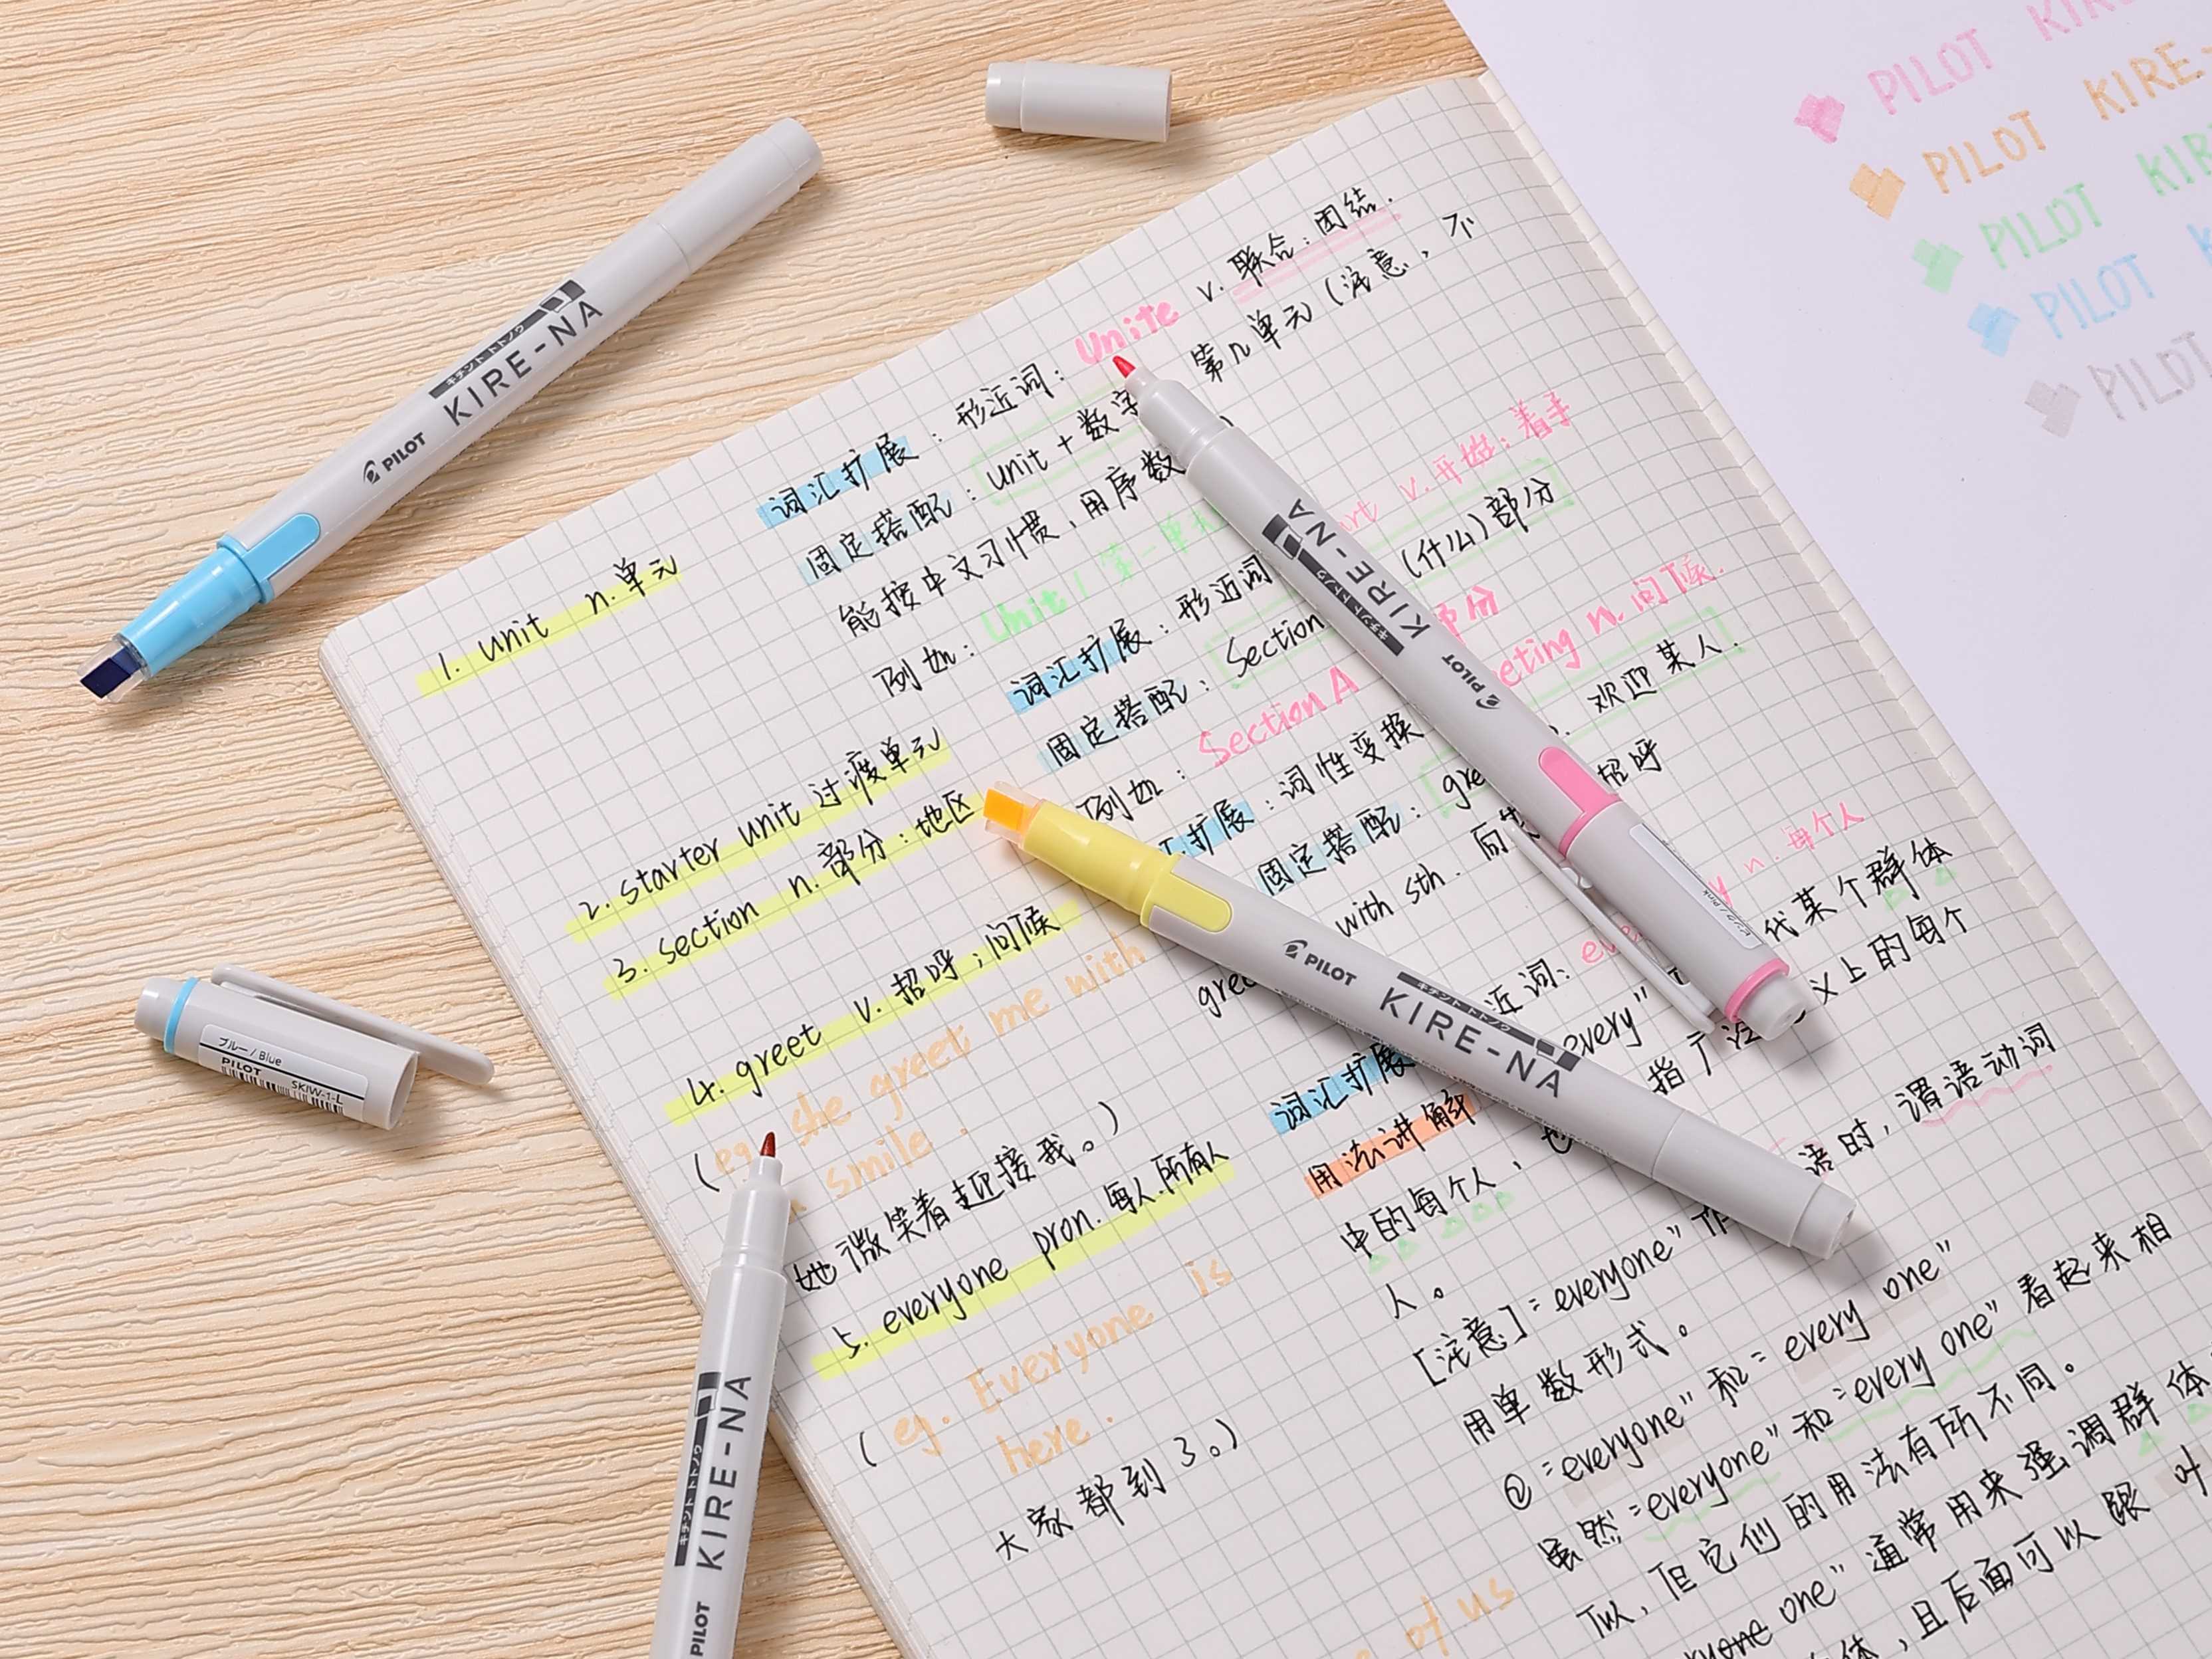 PILOT
PILOT KIRE-
PILOT KIR
PILOT K
PILOT
キチント トトノウ
KIRE-NA
PILOT
1. unit n.单元
词汇扩展：形近词：unite v.联合；团结.
固定搭配：unit + 数字 第n单元(注意，不
能按中文习惯，用序数
例如：Unit 1 第一单元
2. starter unit 过渡单元
词汇扩展：形近词 v.开始；着手
3. section n.部分；地区
固定搭配：Section (什么)部分
例如：Section A 部分
4. greet v.招呼；问候
扩展：词性变换 eting n.问候.
固定搭配：gre 欢迎某人.
with sth. 向 招呼
(eg. she greet me with
a smile.
她微笑着迎接我。)
5. everyone pron.每人.所有人
词汇扩展 近词： n.每个人
用法讲解 every" 代某个群体
中的每个人， 指广泛 义上的每个
人。
(eg. Everyone is
here.
大家都到了。)
[注意]："everyone" 作 语时，谓语动词
用单数形式。
② "everyone" 和 "every one"
虽然 "everyone" 和 "every one" 看起来相
似，但它们的用法有所不同。
one" 通常用来强调群体
体，且后面可以跟
of us
キチント トトノウ
KIRE-NA
PILOT
ピンク/Pink
PILOT
キチント トトノウ
KIRE-NA
ブルー/Blue
PILOT
SKIW-1-L
キチント トトノウ
KIRE-NA
PILOT